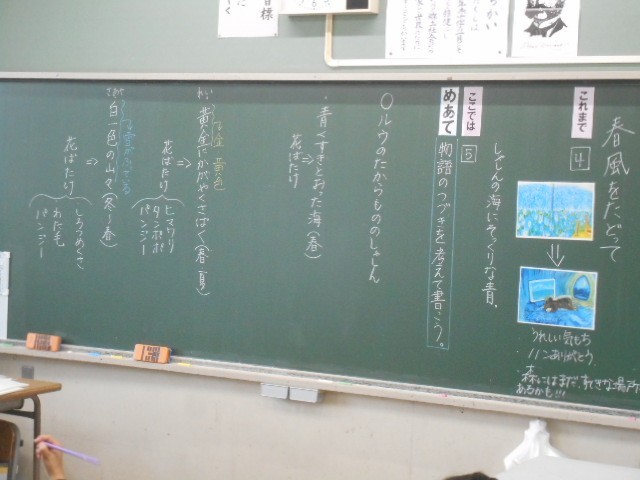 春風をたどって
これまで
4
うれしい気もち
ノノンありがとう
森にはまだ、すてきな場所
あるかも!!!
しゃしんの海にそっくりな青。
ここでは
5
めあて
物語のつづきを考えて書こう。
○ルウのたからもののしゃしん
・青くすきとおった海(春)
⇒
花ばたけ
黄金
黄色
黄金にかがやくさばく(春、夏)
⇒
花ばたけ
ヒマワリ
タンポポ
パンジー
白一色の山々(冬〜春)
⇒
花ばたけ
しろつめくさ
わた毛
パンジー